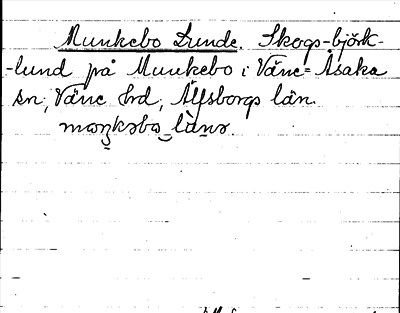 Munkebo Lunde. Skogs-björk-
-lund på Munkebo i Väne-Åsaka
sn, Väne hrd, Älfsborgs län.